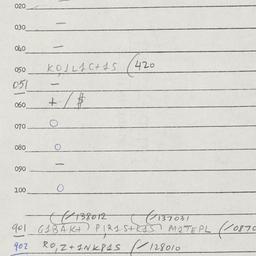 020
030 —
040 —
050 KO,L1C+1S (420
051 —
060 + / $
070 O
080 O
090 —
100 O
(/138012 (/137031
901 G1BAK+) P1R1S+K1S) M1TEPL (/0870
902 RO,Z+1NKP1S (/128010